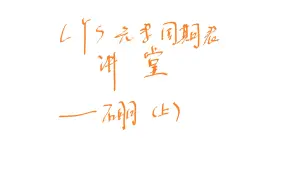 LYS元素周期君
讲堂
——硼（上）